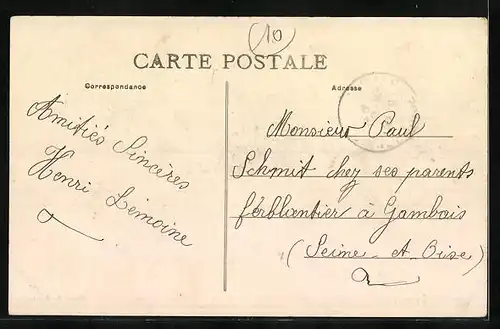 10
CARTE POSTALE
Correspondance
Adresse
Amitiés Sincères
Henri Lemoine
Monsieur Paul
Schmit chez ses parents
ferblantier à Gambais
(Seine-et-Oise)